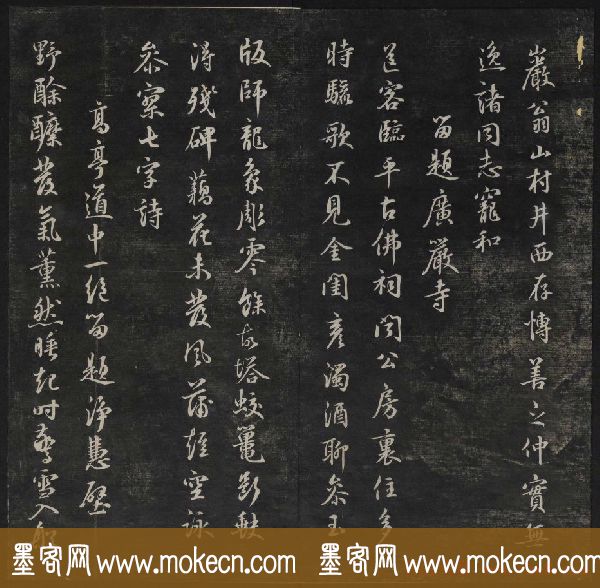 巖翁山村井西存博善之仲實無
逸諸同志寵和
留題廣嚴寺
送客臨平古佛祠閑公房裏住多
時驪歌不見金閨彦濁酒聊參玉
版師龍象彫零餘故塔蛟鼉斷缺
得殘碑藕花未發風蒲短空詠
參寥七字詩
高亭道中一絶留題淨慧壁
野酴醿發氣薰然睡起時驚雪入
墨客网 www.mokecn.com 墨客网 www.mokecn.com